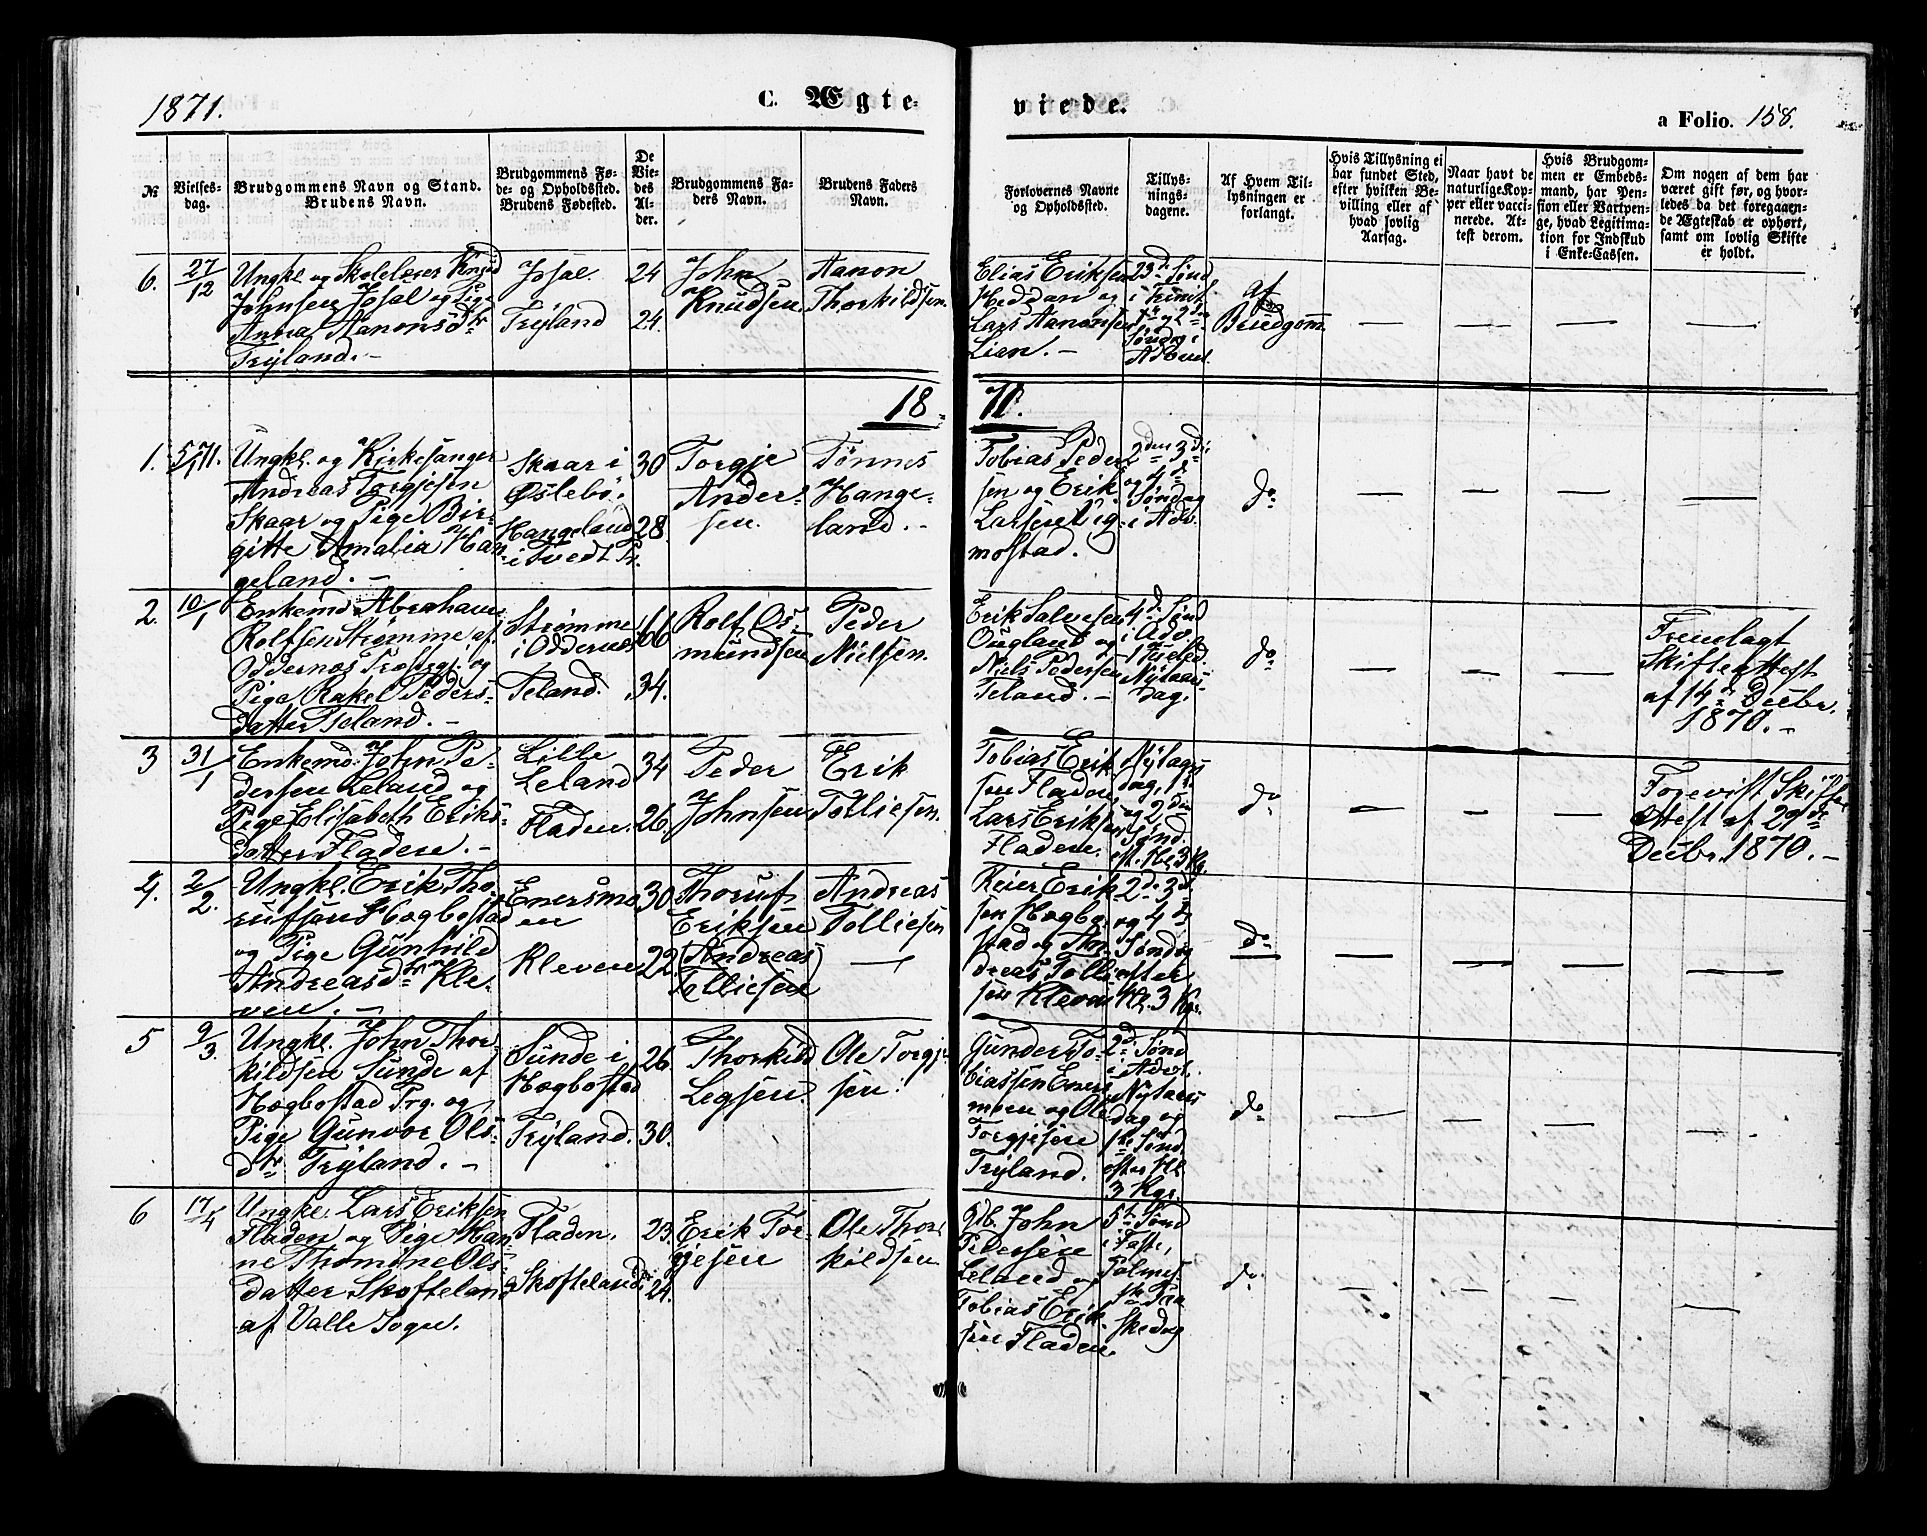 1871.
C. Ægte-
viede.
a Folio. 158.
№
Vielses-
dag.
Brudgommens Navn og Stand.
Brudens Navn.
Brudgommens Fø-
de- og Opholdssted.
Brudens Fødested.
De
Vie-
des
Al-
der.
Brudgommens Fa-
ders Navn.
Brudens Faders
Navn.
Forlovernes Navne
og Opholdssted.
Tillys-
nings-
dagene.
Af Hvem Til-
lysningen er
forlangt.
Hvis Tillysning ei
har fundet Sted,
efter hvilken Be-
villing eller af
hvad lovlig
Aarsag.
Naar havt de
naturlige Kop-
per eller vacci-
nerede. At-
test derom.
Hvis Brudgom-
men er Embeds-
mand, har Pen-
sion eller Vartpen-
ge, hvad Legitima-
tion for Indskud
i Enke-Cassen.
Om nogen af dem har
været gift før, og hvor-
ledes da det foregaaen-
de Ægteskab er ophørt,
samt om lovlig Skifte
er holdt.
6.
27/12
Ungkl og Skolelærer Knud
Johnsen Josal og Pige
Anna Aanonsdtr
Trÿland. -
Josal
Trÿland
24
24.
John
Knudsen.
Aanon
Thorkildsen.
Elias Eriksen
Heddan og
Lars Aanonsen
Lien. -
23d. Sønd
i Trinit.
1ste og 2den
Søndag i
Advent.
Af
Brudgom.
18 71.
1.
5/1 71.
Ungkl. og Kirkesanger
Andreas Torgjesen
Skaar og Pige Bir-
gitte Amalia Han-
geland. -
Skaar i
Øslebø.
Hangeland
i Tvedt Pr.
30
28.
Torgje
Ander-
sen.
Tønnes
Hange-
land. -
Tobias Peder-
sen og Erik
Larsen Vig-
mostad.
2den 3die
og 4de
Søndag
i Adv.
do
2.
10/1
Enkemd. Abraham
Rolfsen Strømme af
Oddernes Præstegj. og
Pige Rakel Peders-
datter Teland. -
Strømme
i Oddernes
Teland.
66
34.
Rolf Os-
mundsen
Peder
Nielsen.
Erik Salvesen
Ougland og
Niels Pedersen
Teland. -
4d. Sønd
i Adv.
1 Juled.
Nÿtaars-
dag.
do
Fremlagt
Skifteattest
af 14d Decbr.
1870. -
3
31/1
Enkemd. John Pe-
dersen Leland og
Pige Elisabeth Eriks-
datter Fladen. -
Lille
Leland
Fladen.
34
26.
Peder
Johnsen
Erik
Tolliesen.
Tobias Erik-
sen Fladen,
Lars Eriksen
Fladen.
Nÿtaars
dag, 1ste
og 2den
Sønd.
eft. Hl. 3 Kg.
do
Forevist Skifte
attest af 29de
Decbr. 1870. -
4.
2/2.
Ungkl. Erik Tho-
rufsen Hægbostad
og Pige Gunhild
Andreasdtr Kle-
ven. -
Enersmo
en
Kleven
30
22.
Thoruf
Eriksen
(Andreas
Tolliesen)
Andreas
Tolliesen
Reier Erik-
sen Hægbo-
stad og An-
dreas Tollie-
sen Kleven
2d. 3d.
og 4d
Søndag
efter
Hl. 3 Kgr.
do
5
9/3.
Ungkl. John Thor-
kildsen Sunde af
Hægbostad Prg. og
Pige Gunvor Ols-
dtr Trÿland. -
Sunde i
Hægbostad
Trÿland.
26.
30.
Thorkild
Legsen.
Ole Torgje
sen.
Gunder To-
biassen Eners
moen og Ole
Torgjesen
Trÿland.
2d. Sønd
i Advt.
Nÿtaars
dag og
1ste Sønd.
efter Hl
3 Kgr.
do
6
17/4
Ungkl. Lars Eriksen
Fladen og Pige Han-
ne Thomine Ols-
datter Skofteland
af Valle Sogn.
Fladen.
Skofteland
23.
24.
Erik Tor-
gjesen
Ole Thor-
kildsen
Gb. John
Pedersen
Leland og
Tobias Erik-
sen Fladen.
5t. Sønd
i Faste,
Palmes.
Skedag
do.